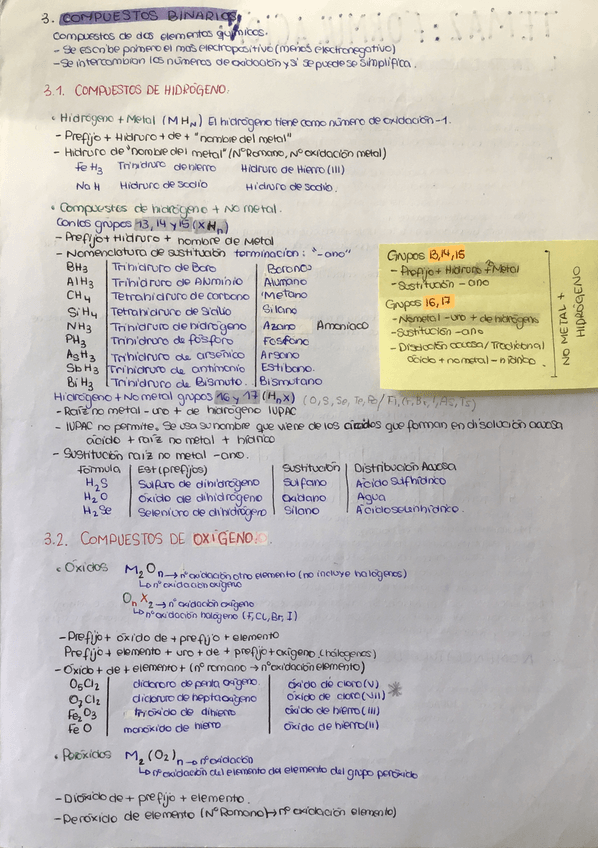 3. COMPUESTOS BINARIOS
Compuestos de dos elementos químicos.
- Se escribe primero el mas electropositivo (menos electronegativo)
- Se intercambian los números de oxidación y si se puede se simplifica.
3.1. COMPUESTOS DE HIDRÓGENO.
• Hidrógeno + Metal (MHN) El hidrógeno tiene como número de oxidación -1.
- Prefijo + Hidruro + de + "nombre del metal"
- Hidruro de "nombre del metal" (NºRomano, Nº oxidación metal)
FeH3 Trihidruro de hierro Hidruro de Hierro (III)
NaH Hidruro de Sodio Hidruro de sodio.
• Compuestos de hidrógeno + No metal.
Con los grupos 13, 14 y 15 (XHn)
- Prefijo + Hidruro + nombre de Metal
- Nomenclatura de sustitución terminación: "-ano"
BH3 Trihidruro de Boro Borano
AlH3 Trihidruro de Aluminio Alumano
CH4 Tetrahidruro de carbono Metano
SiH4 Tetrahidruro de Silicio Silano
NH3 Trihidruro de hidrógeno Azano Amoniaco
PH3 Trihidruro de fósforo Fosfano
AsH3 Trihidruro de arsénico Arsano
SbH3 Trihidruro de antimonio Estibano
BiH3 Trihidruro de Bismuto. Bismutano
Grupos 13,14,15
- Prefijo + Hidruro + Metal
- Sustitución - ano
Grupos 16,17
- No metal - uro + de hidrógeno
- Sustitución - ano
- Disolución acuosa / Tradicional
ácido + no metal - hídrico
NO METAL + HIDRÓGENO
Hidrógeno + No metal grupos 16 y 17 (HnX) (O, S, Se, Te, Po /
- Raíz no metal - uro + de hidrógeno IUPAC
- IUPAC no permite. Se usa su nombre que viene de los ácidos que forman en disolución acuosa
ácido + raíz no metal + hídrico
- Sustitución raíz no metal - ano.
Fórmula Est (prefijos) Sustitución Distribución Acuosa
H2S Sulfuro de dihidrógeno Sulfano Ácido Sulfhídrico
H2O Óxido de dihidrógeno Oxidano Agua
H2Se Seleniuro de dihidrógeno Silano Ácido selenhídrico.
3.2. COMPUESTOS DE OXÍGENO.
• Óxidos M2On → nº oxidación otro elemento (no incluye halógenos)
↳ nº oxidación oxígeno
OnX2 → nº oxidación oxígeno
↳ nº oxidación halógeno (F, Cl, Br, I)
- Prefijo + óxido de + prefijo + elemento
Prefijo + elemento + uro + de + prefijo + oxígeno (hálogenos)
- Óxido + de + elemento + (nº romano → nº oxidación elemento)
O5Cl2 dicloruro de penta oxígeno. óxido de cloro (V)
O7Cl2 dicloruro de heptaoxígeno óxido de cloro (VII) *
Fe2O3 trióxido de dihierro óxido de hierro (III)
FeO monóxido de hierro óxido de hierro (II)
• Peróxidos M2(O2)n → nº oxidación
↳ nº oxidación del elemento del elemento del grupo peróxido
- Dióxido de + prefijo + elemento.
- Peróxido de elemento (NºRomano) → nº oxidación elemento)